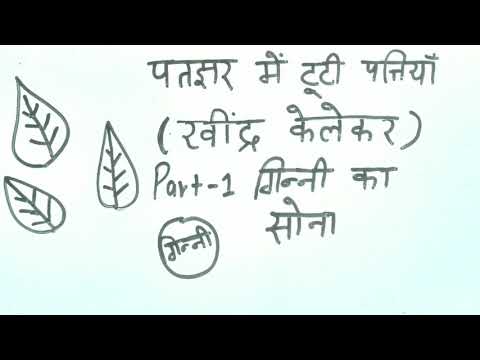 पतझर में टूटी पत्तियाँ
(रवींद्र केलेकर)
Part-1 गिन्नी का
सोना
गिन्नी